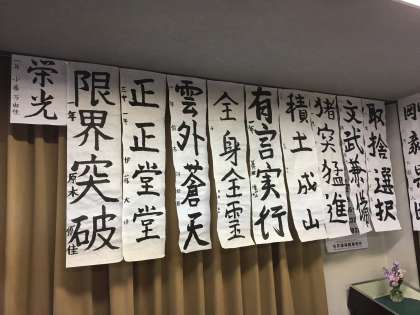 取捨選択
文武兼備
猪突猛進
積土成山
有言実行
全身全霊
雲外蒼天
正正堂堂
限界突破
栄光